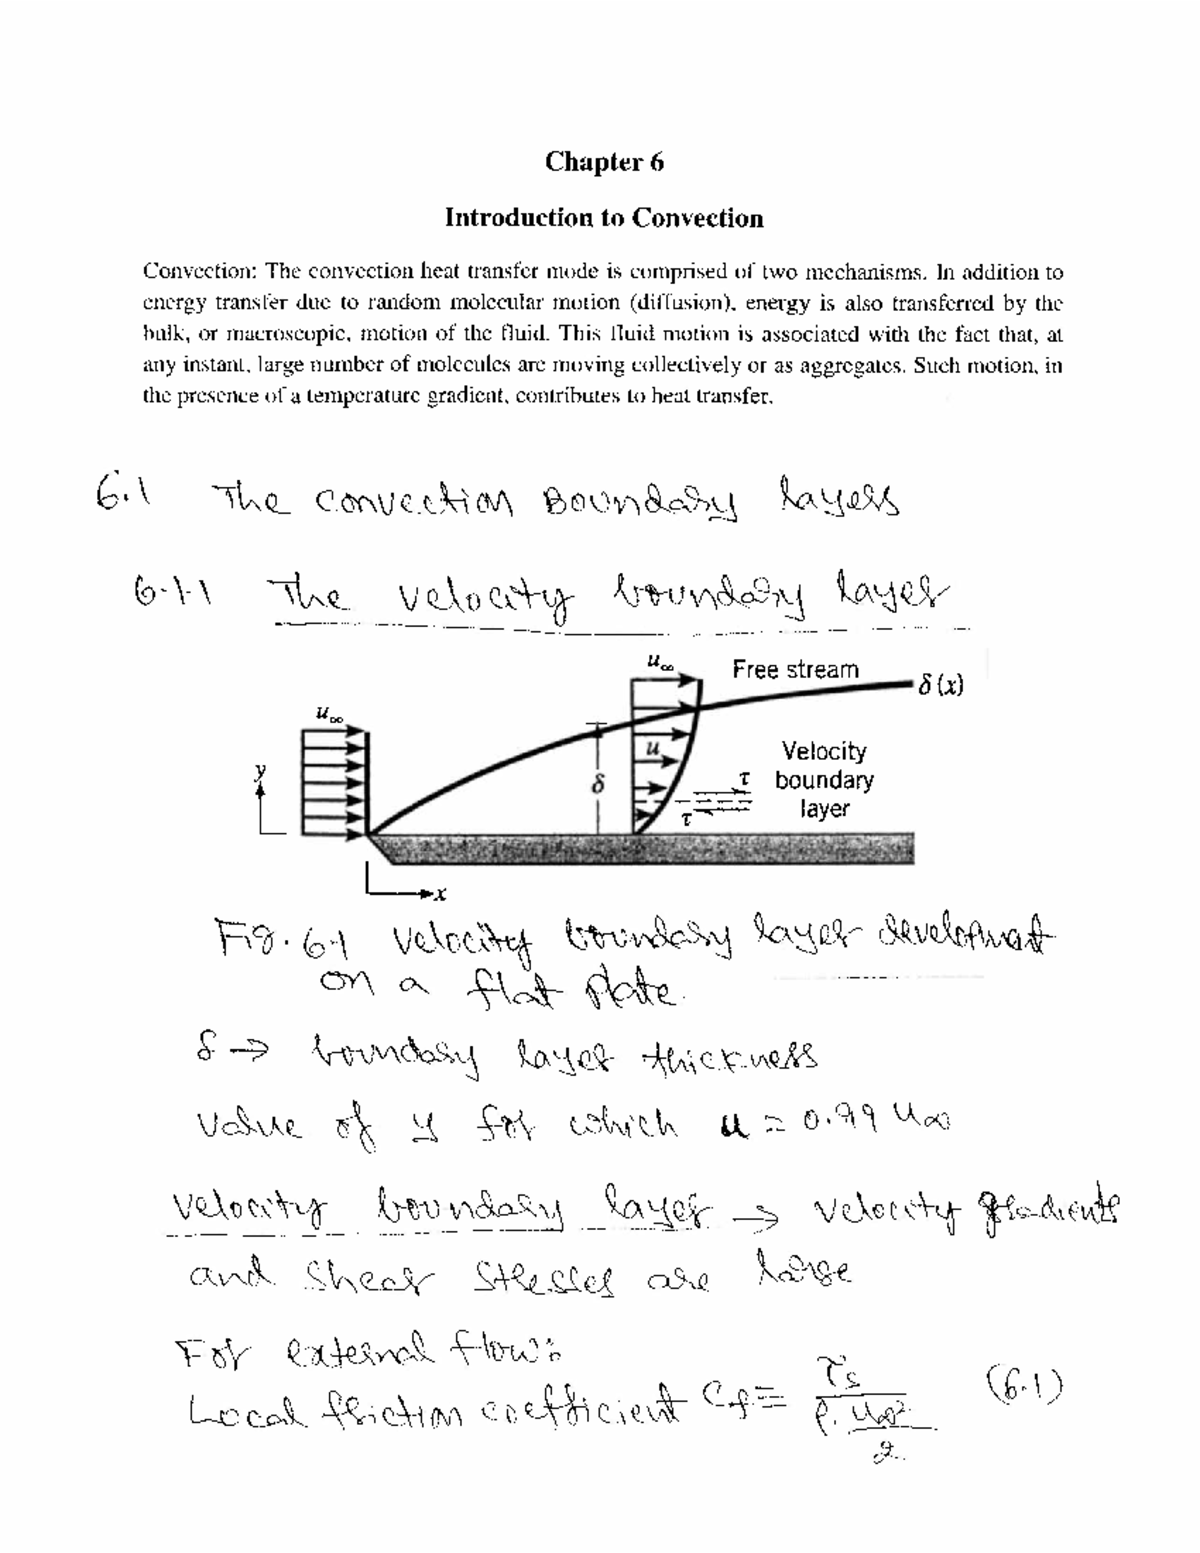 Chapter 6
Introduction to Convection
Convection: The convection heat transfer mode is comprised of two mechanisms. In addition to
energy transfer due to random molecular motion (diffusion), energy is also transferred by the
bulk, or macroscopic, motion of the fluid. This fluid motion is associated with the fact that, at
any instant, large number of molecules are moving collectively or as aggregates. Such motion, in
the presence of a temperature gradient, contributes to heat transfer.
6.1 The Convection Boundary layers
6.1.1 The velocity boundary layer
u∞ Free stream δ(x)
u∞
y
u
δ
τ
τ
Velocity
boundary
layer
x
Fig. 6.1 Velocity boundary layer development
on a flat plate.
δ → boundary layer thickness
value of y for which u = 0.99 u∞
velocity boundary layer → velocity gradients
and shear stresses are large
For external flow:
Local friction coefficient Cf ≡ τs / (ρ. u∞²/2) (6.1)